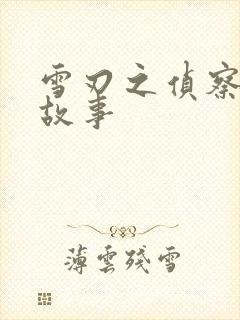 雪刃之偵察
故事
薄雲殘雪